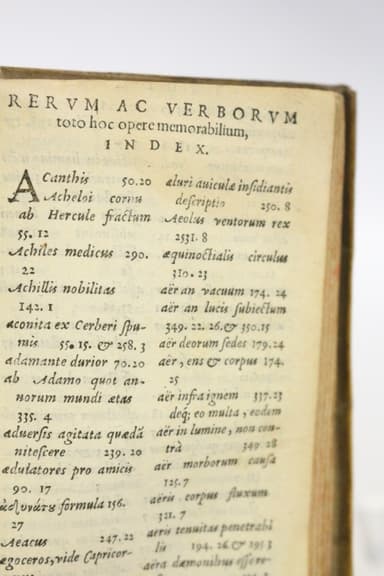 RERVM AC VERBORVM
toto hoc opere memorabilium,
INDEX.
ACanthis 50.20
Acheloi cornu
ab Hercule fractum
55. 12
Achiles medicus 290.
22
Achillis nobilitas
142. 1
aconita ex Cerberi spu-
mis 55. 15. & 258. 3
adamante durior 70.20
ab Adamo quot an-
norum mundi ætas
335. 4
aduersis agitata quædã
nitescere 239. 20
ædulatores pro amicis
90. 17
formula 156.
27
Aeacus 247. 22
ægoceros, vide Capricor-
æluri auiculæ insidiantis
descriptio 250. 8
Aeolus ventorum rex
2531. 8
æquinoctialis circulus
310. 23
aër an vacuum 174. 24
aër an lucis subiectum
349. 22. 26. & 350.15
aër deorum sedes 179.24
aër, ens & corpus 174.
25
aër infra ignem 337.23
deq; eo multa, eodem
aër in lumine, non con-
trà 349 28
aër morborum causa
125.7
aëris corpus fluxum
321. 7
aëris tenuitas penetrabi
lis 194. 26 &
aëra dæmonibus